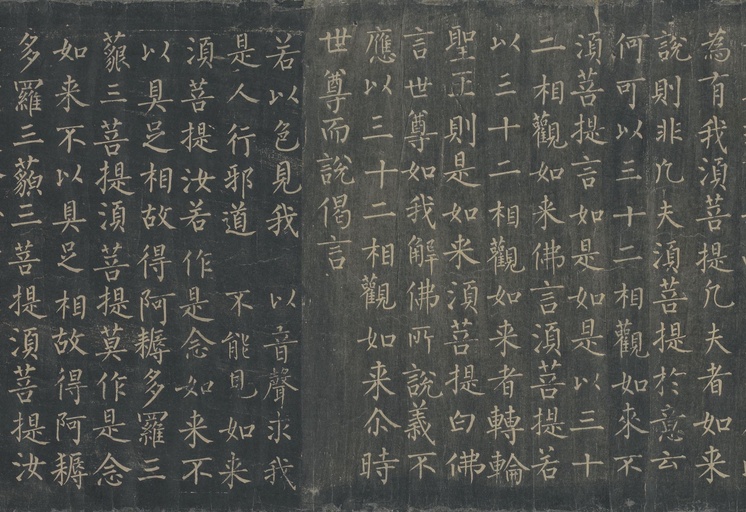 為有我湏菩提凢夫者如来
說則非凢夫湏菩提於意云
何可以三十二相觀如来不
湏菩提言如是如是以三十
二相觀如来佛言湏菩提若
以三十二相觀如来者轉輪
聖王則是如来湏菩提白佛
言世尊如我解佛所說義不
應以三十二相觀如来尒時
世尊而說偈言
若以色見我 以音聲求我
是人行邪道 不能見如来
湏菩提汝若作是念如来不
以具足相故得阿耨多羅三
藐三菩提湏菩提莫作是念
如来不以具足相故得阿耨
多羅三藐三菩提湏菩提汝